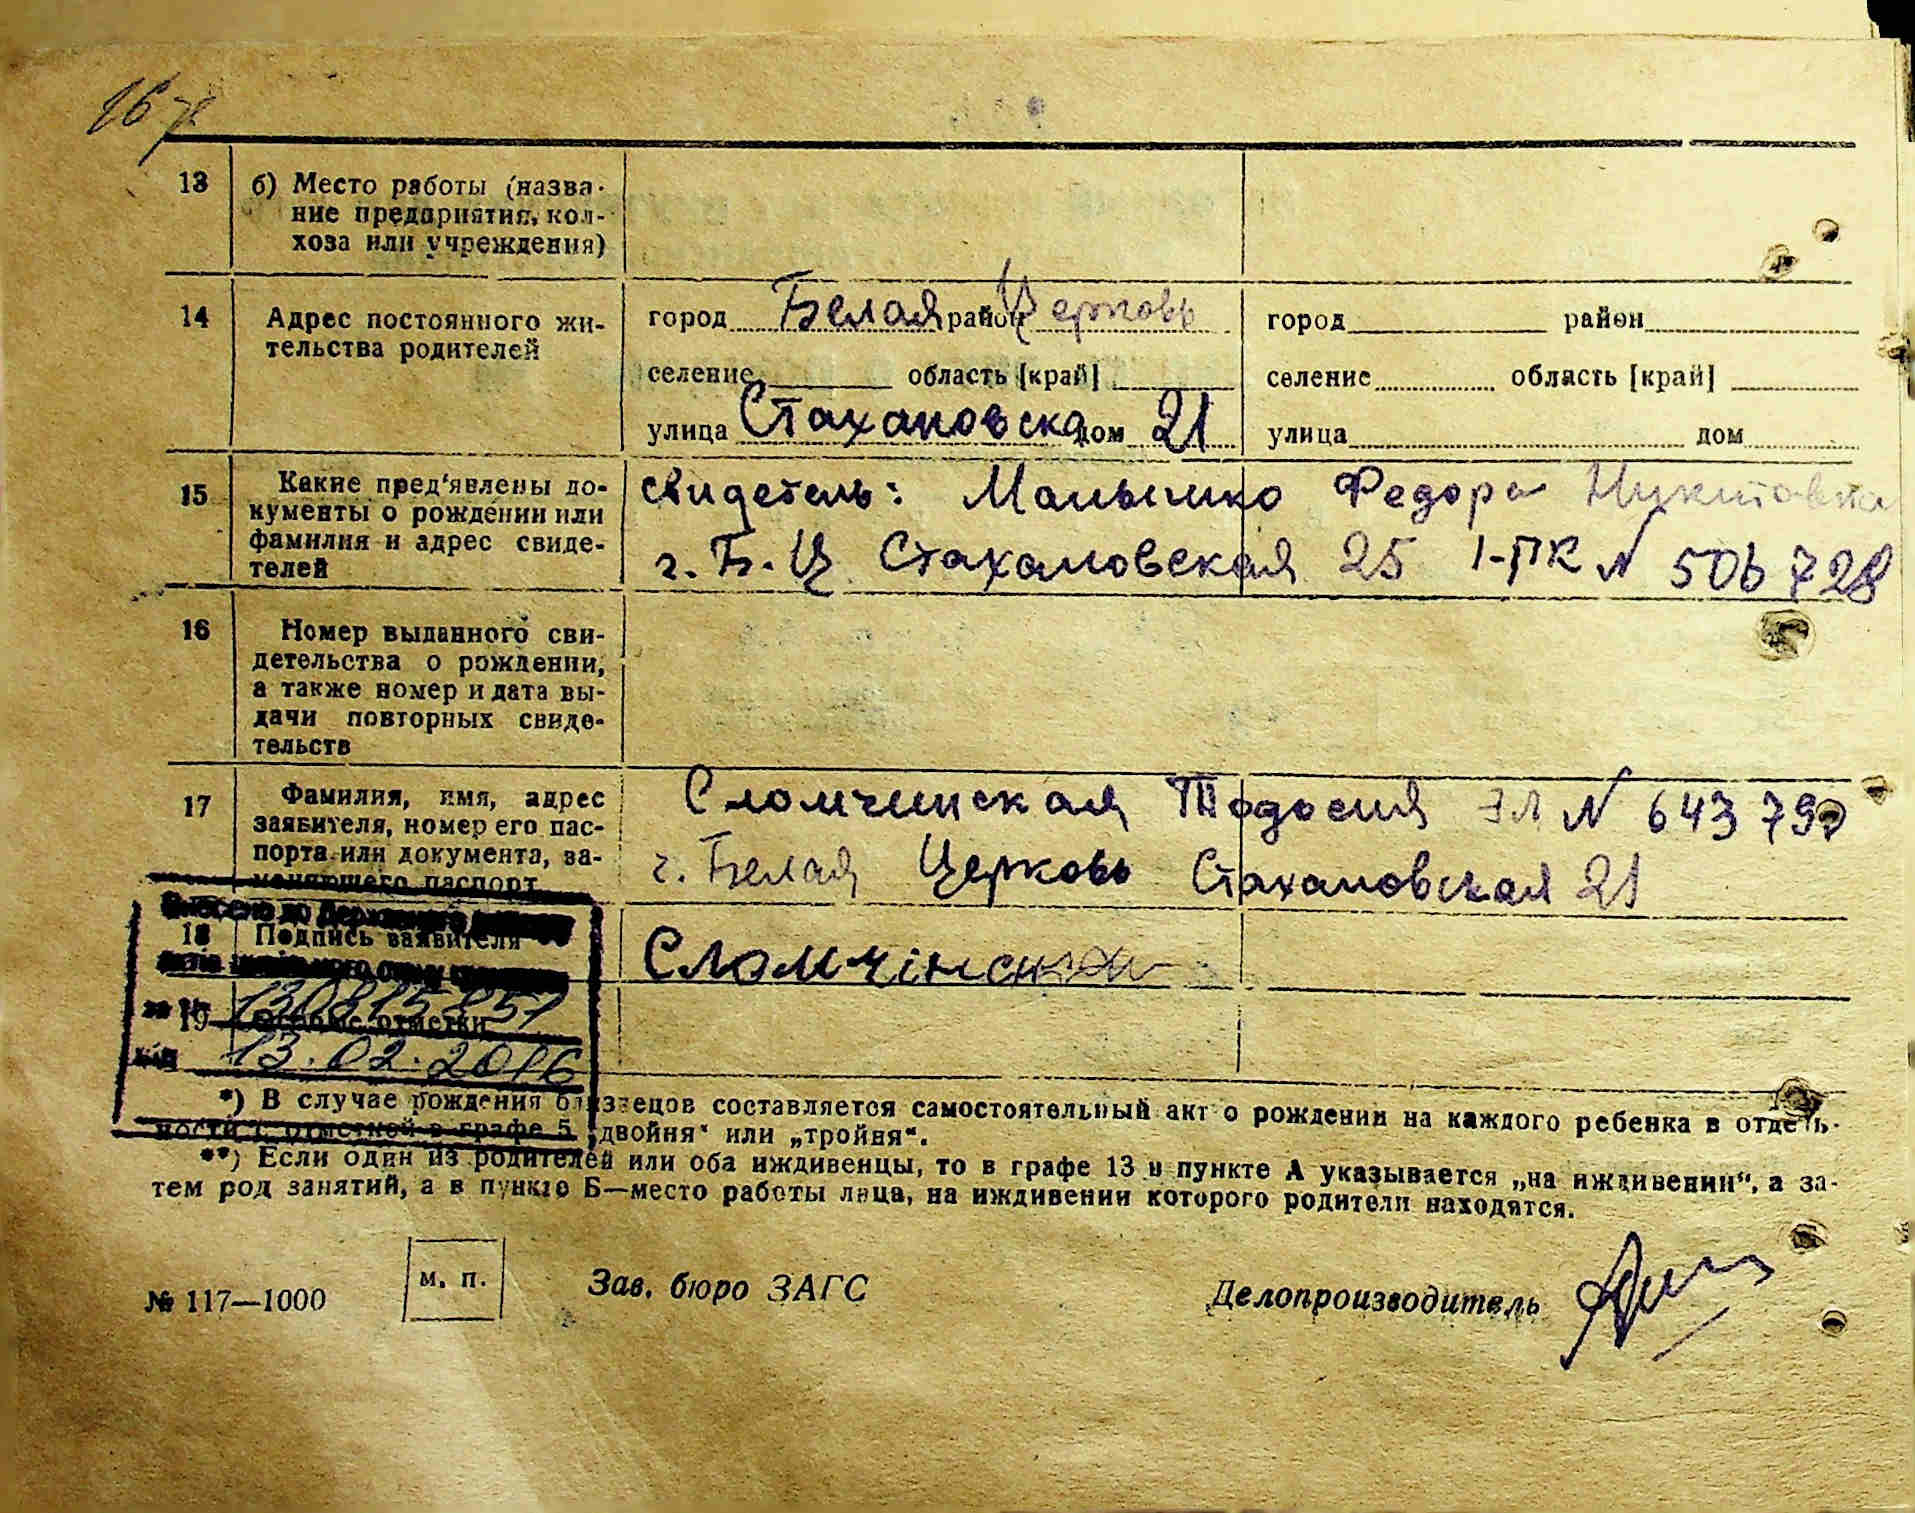 13 б) Место работы (назва-
ние предприятия, кол-
хоза или учреждения)
14 Адрес постоянного жи-
тельства родителей
город Белая район Церковь
селение область [край]
улица Стахановска дом 21
город район
селение область [край]
улица дом
15 Какие пред'явлены до-
кументы о рождении или
фамилия и адрес свиде-
телей
свидетель: Малышко Федора
г. Б. Ц. Стахановская 25 I-ПК N 506728
16 Номер выданного сви-
детельства о рождении,
а также номер и дата вы-
дачи повторных свиде-
тельств
17 Фамилия, имя, адрес
заявителя, номер его пас-
порта или документа, за-
меняющего паспорт
Сломчинская Тодосия ЭЛ N 64379
г. Белая Церковь Стахановская 21
Внесено до Державного
18 Подпись заявителя
Сломчінська
130815857
19 отметки
13.02.2016
*) В случае рождения близнецов составляется самостоятельный акт о рождении на каждого ребенка в отдель-
ности с отметкой в графе 5 „двойня" или „тройня".
**) Если один из родителей или оба иждивенцы, то в графе 13 в пункте А указывается „на иждивении", а за-
тем род занятий, а в пункте Б—место работы лица, на иждивении которого родители находятся.
№ 117—1000
м. п.
Зав. бюро ЗАГС
Делопроизводитель